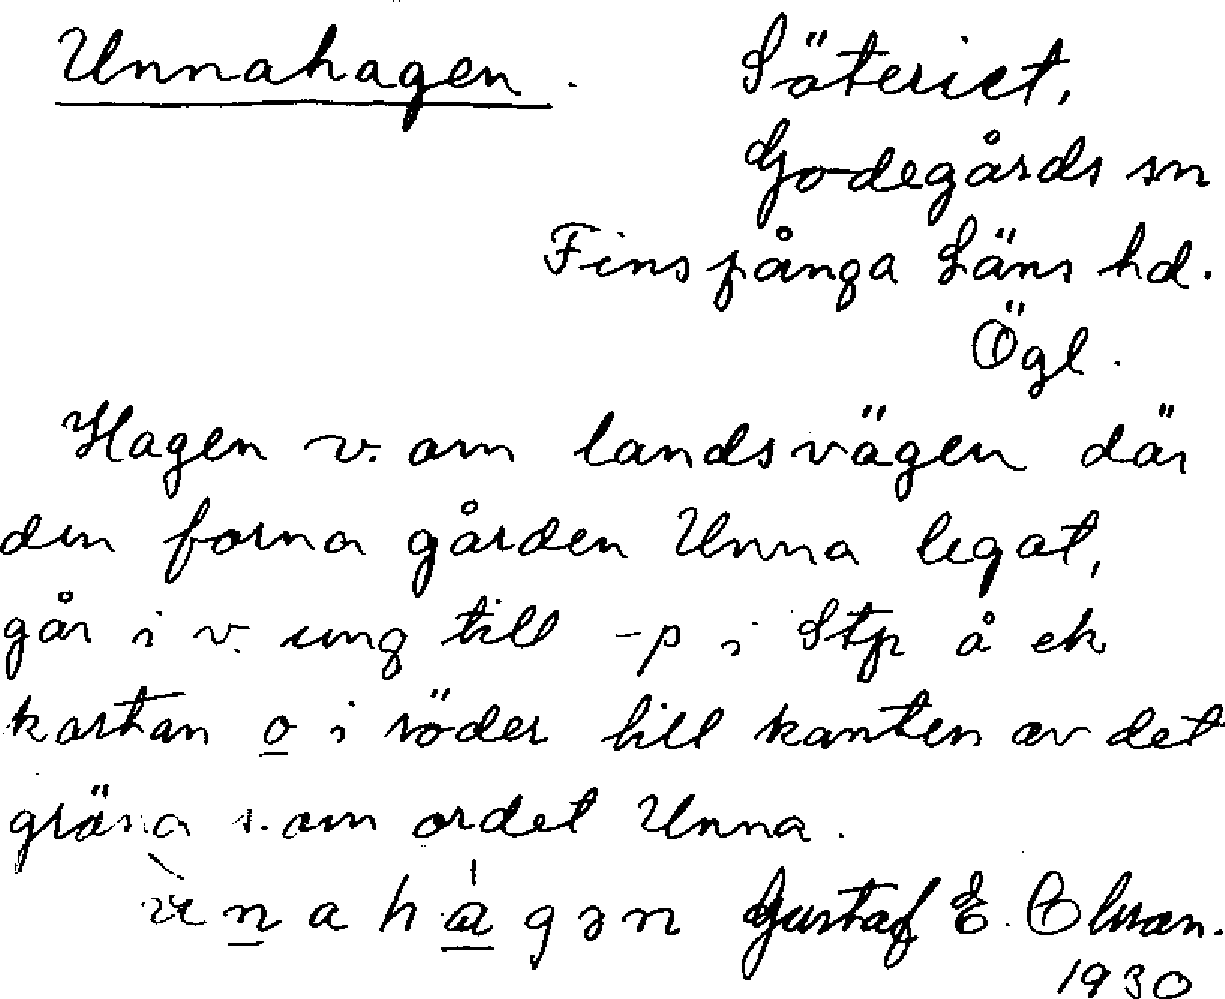 Unnahagen.
Säteriet,
Godegårds sn
Finspånga Läns hd.
Ögl.
Hagen v. om landsvägen där
den forna gården Unna legat,
går i v. ung till -p i Stp å ek
kartan o i söder till kanten av det
gröna s. om ordet Unna.
na hágən Gustaf E. Olsson.
1930